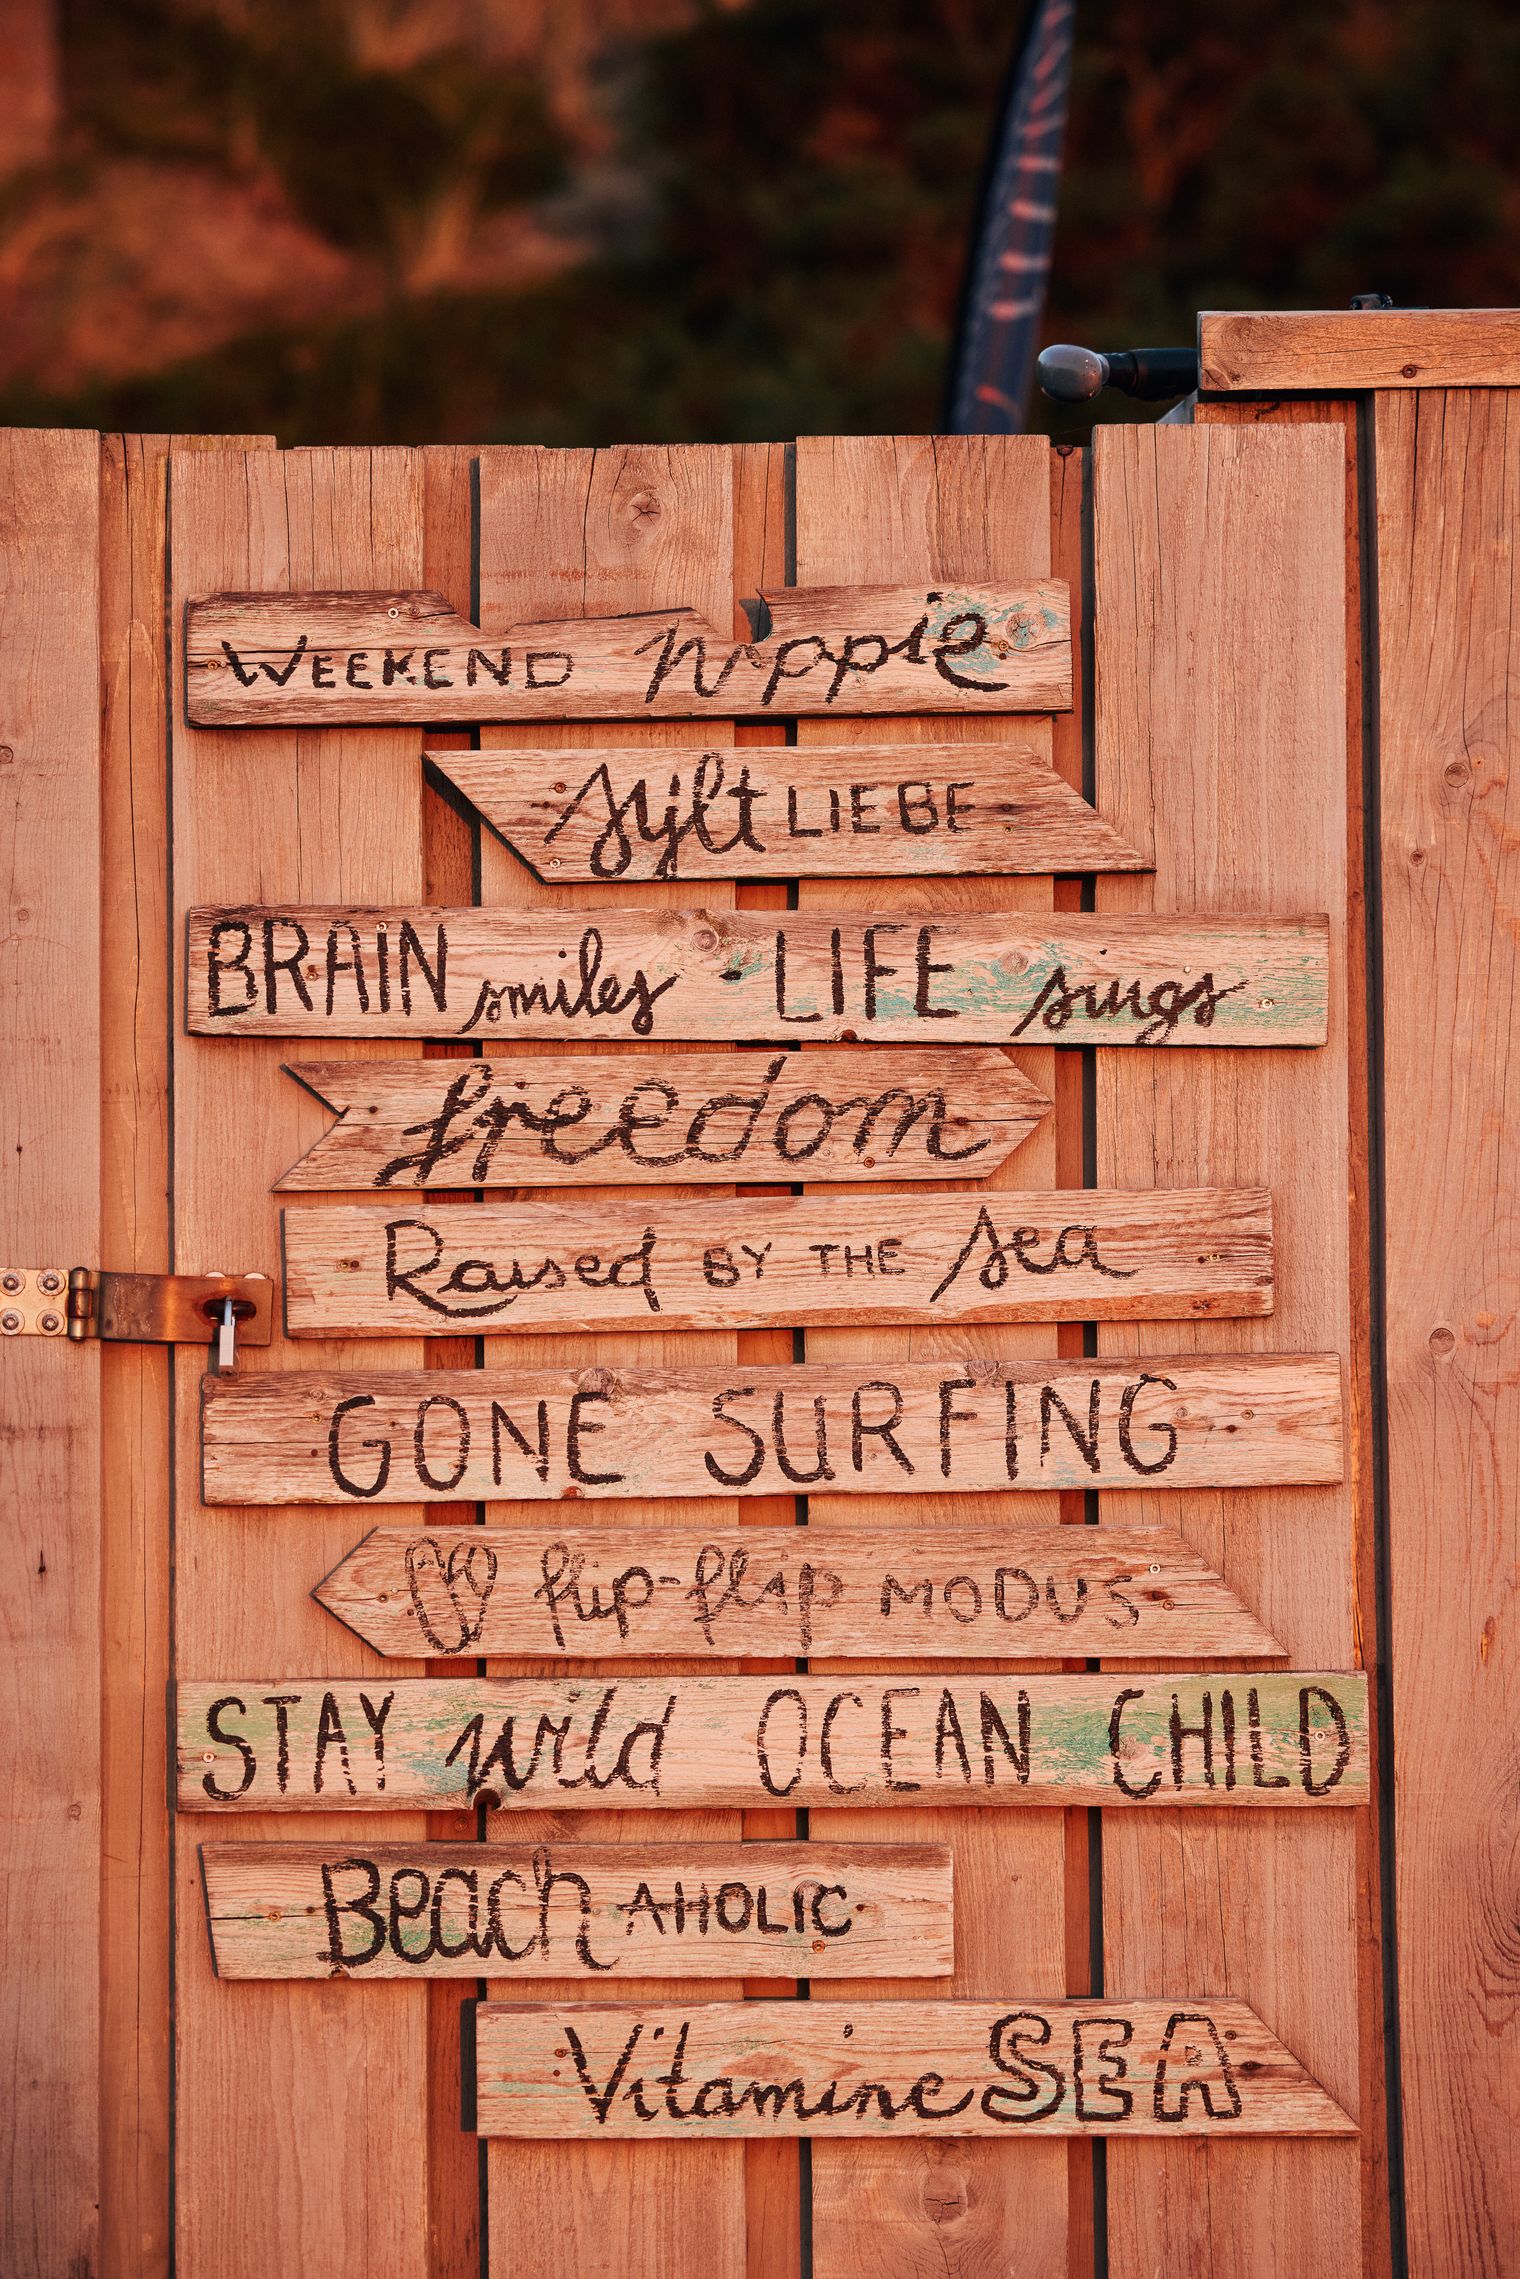 WEEKEND hippie
Sylt LIEBE
BRAIN smiles - LIFE sings
freedom
Raised BY THE Sea
GONE SURFING
flip-flip MODUS
STAY wild OCEAN CHILD
Beach AHOLIC
Vitamine SEA